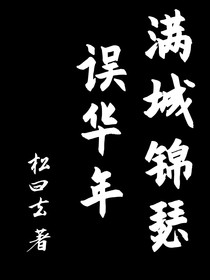 满城锦瑟
误华年
松曰玄 著